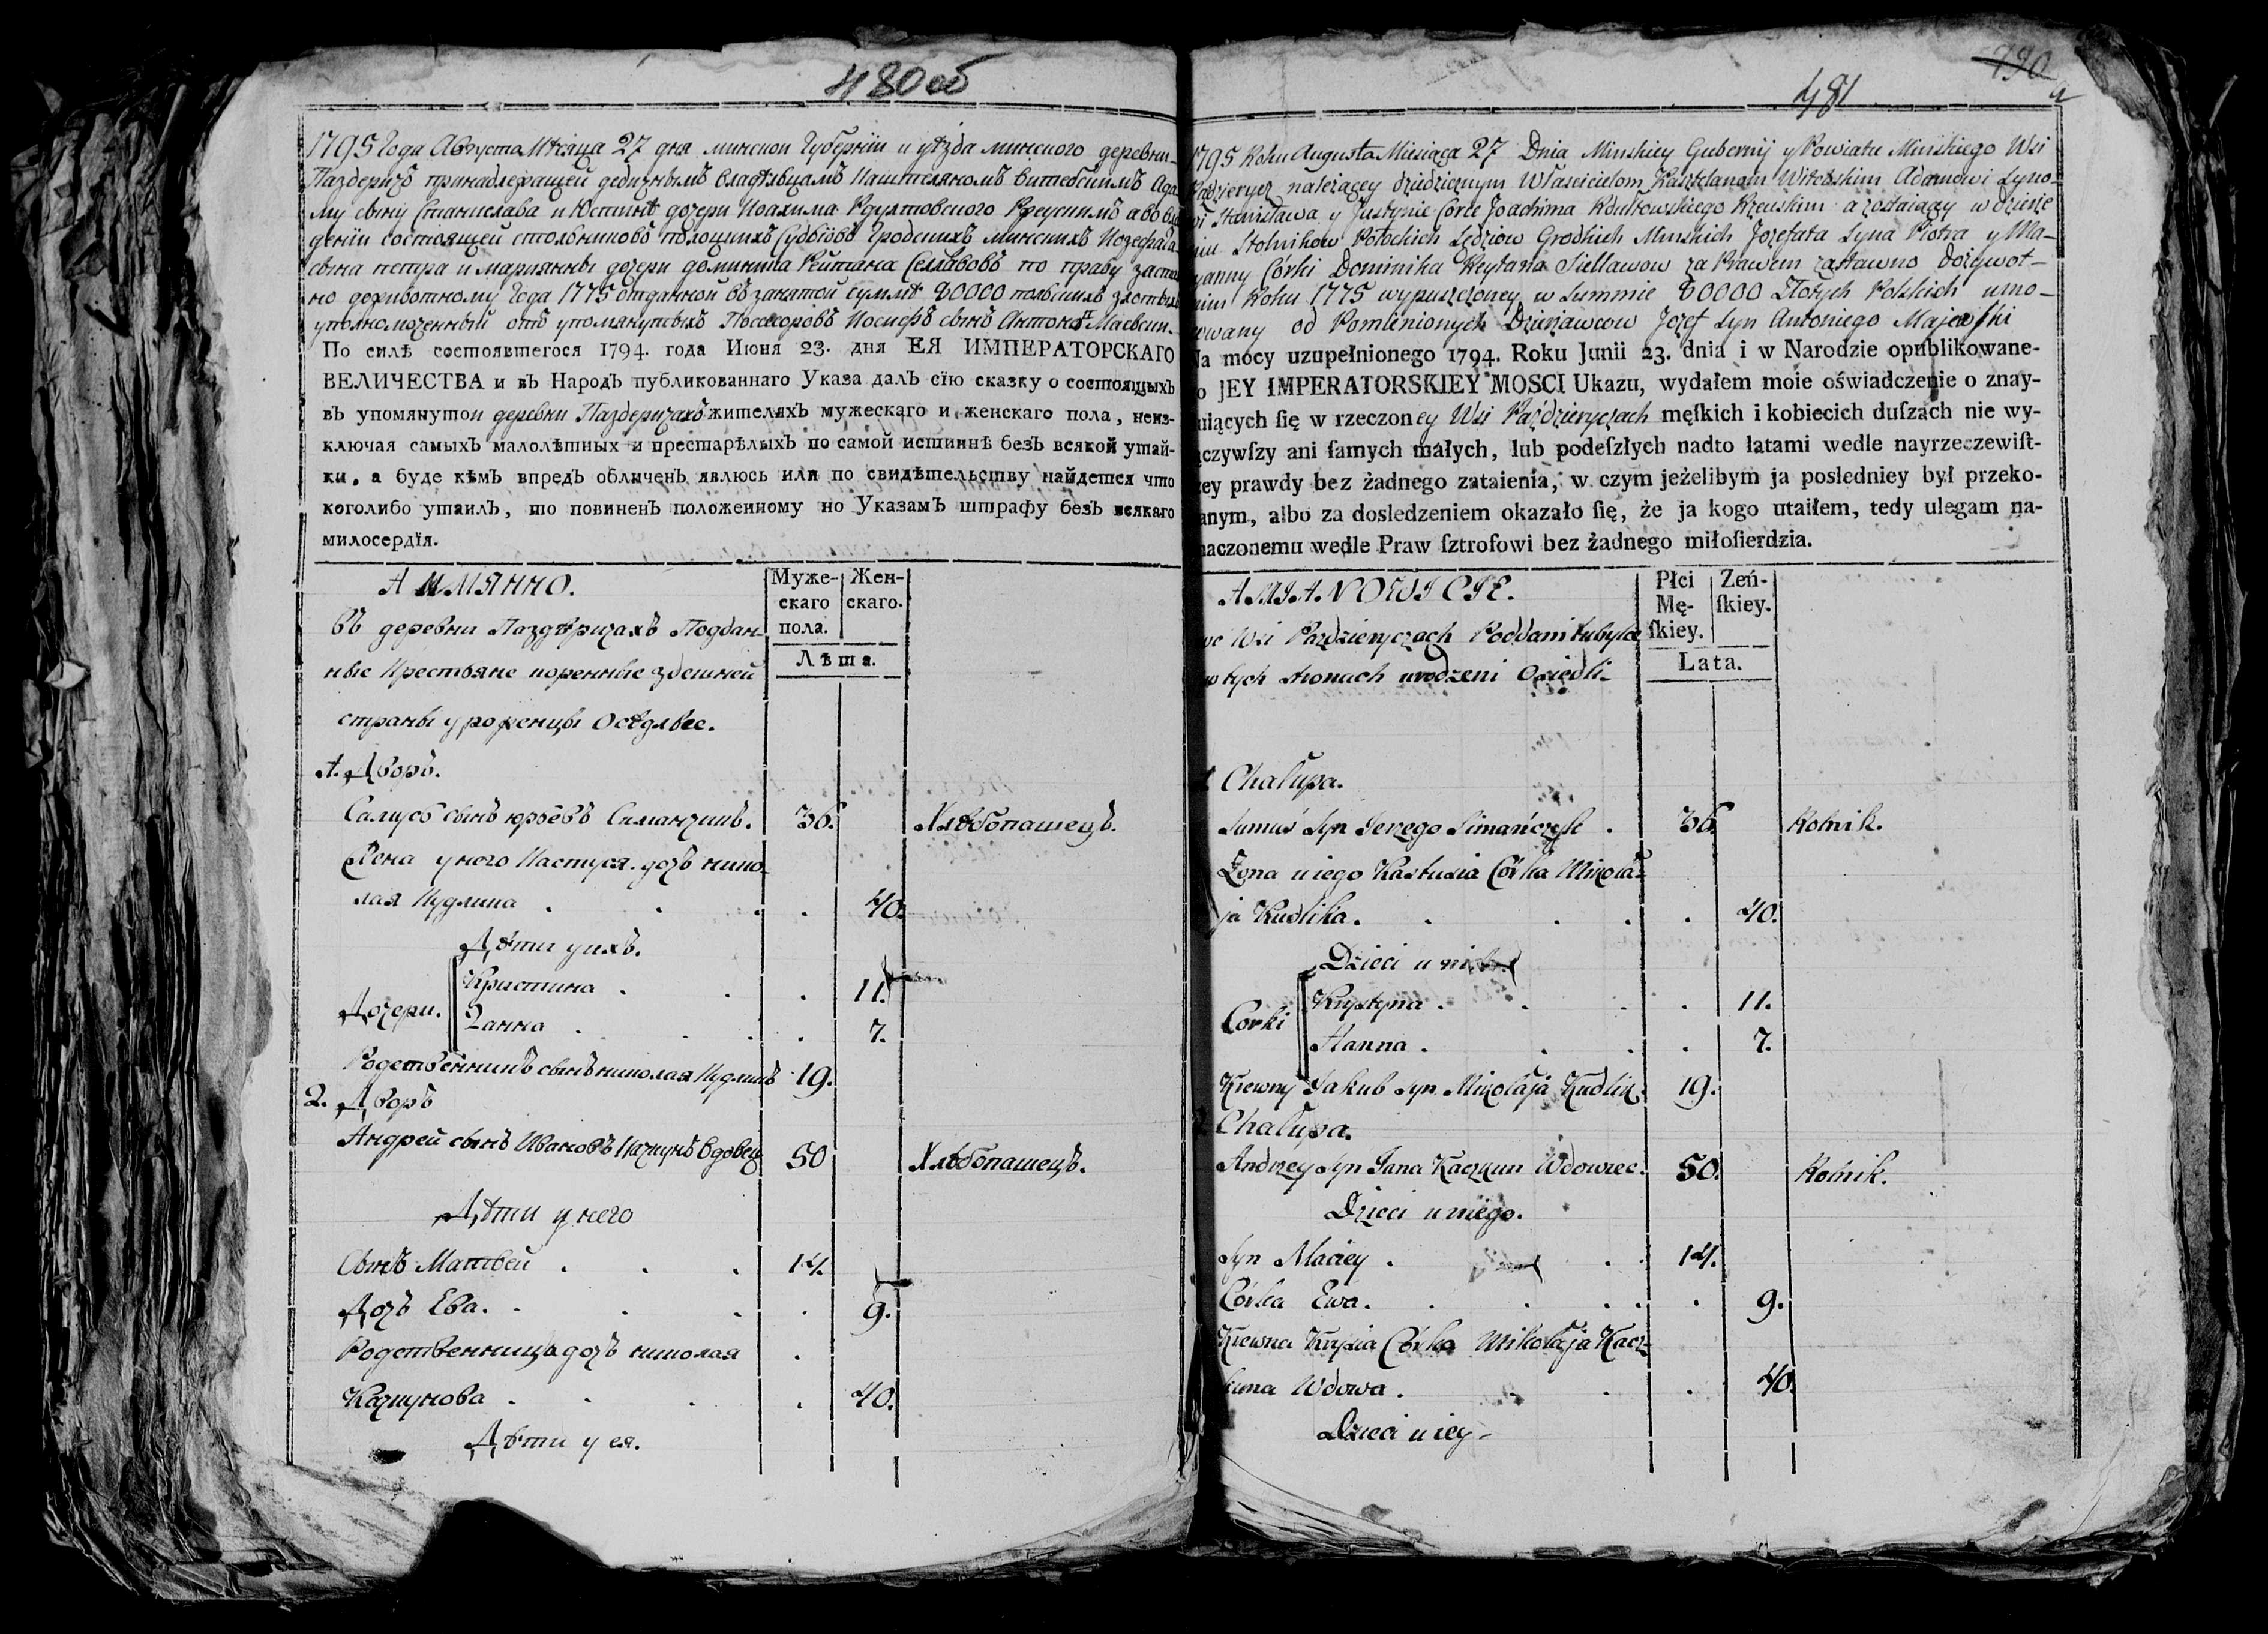 480 об
1795 Года Августа Мѣсяца 27 дня минской Губерніи и уѣзда минского деревни
Паздеричъ принадлежащей дедизнымъ владѣльцамъ Каштеляномъ витебскимъ Ада-
му сыну Станислава и Юстинѣ дочери Иоахима Рдултовского Ржеускимъ а во вла
деніи состоящей стольниковъ полоцкихъ Судьювъ Гродскихъ минскихъ Иозефата
сына петра и марианны дочери доминика Рейтана Селлявовъ по праву застав
но доживотному Года 1775 отданной въ занятой суммѣ 80000 польскихъ злотыхъ
уполномоченный отъ упомянутыхъ Посесоровъ Иосифъ сынъ Антона Маевский
По силѣ состоявшегося 1794. года Июня 23. дня ЕЯ ИМПЕРАТОРСКАГО
ВЕЛИЧЕСТВА и въ Народъ публикованнаго Указа далъ сїю сказку о состоящыхъ
въ упомянутой деревни Паздеричахъ жителяхъ мужескаго и женскаго пола, неиз-
ключая самыхъ малолѣтныхъ и престарѣлыхъ по самой истиннѣ безъ всякой утай-
ки, а буде кѣмъ впредъ обличенъ явлюсь или по свидѣтельству найдется что
коголибо утаилъ, то повиненъ положенному по Указамъ штрафу безъ всякаго
милосердїя.
А ИМЯННО.
Муже-
скаго
пола.
Жен-
скаго.
Лѣта.
въ деревни Паздѣричахъ Поддан-
ные Крестьяне коренные здешней
страны уроженцы Осѣдлые.
1. Дворъ.
Самусь сынъ юрьевъ Симанчикъ. 36. Хлѣбопашецъ.
Жена у него Кастуся дочь нико-
лая Кудлика . . . . 40.
Дѣти у ихъ.
Дочери.
Кристина . . . 11.
Ганна . . . . 7.
Родственникъ сынъ николая Кудликъ 19.
2. Дворъ
Андрей сынъ Ивановъ Качкунъ вдовец 50 Хлѣбопашецъ.
Дѣти у него
Сынъ Матвей . . . 14.
Дочь Ева. . . . . 9.
Родственница дочь николая .
Качкунова . . . . 40.
Дѣти у ея.
481
790
1795 Roku Augusta Miesiąca 27 Dnia Minskiey Gubernij y Powiatu Minskiego Wsi
Paździerycz należącey dziedzicznym Włascicielom Kasztelanom Witebskim Adamowi Syno-
wi Stanisława y Justynie Corce Joachima Rdułtowskiego Rzewskim a zostaiący w dzierże
niu Stolnikow Połockich Sędziow Grodskich Minskich Jozefata Syna Piotra y Ma-
ryanny Córki Dominika Reytana Siellawow za Prawem zastawno Dożywot-
nim Roku 1775 wypuszczoney w Summie 80000 Złotych Polskich umo-
cowany od Pomienionych Dzierżawcow Jozef Syn Antoniego Majewski
Na mocy uzupełnionego 1794. Roku Junii 23. dnia i w Narodzie opublikowane-
go JEY IMPERATORSKIEY MOSCI Ukazu, wydałem moie oświadczenie o znay-
duiących ſię w rzeczoney Wsi Paździeryczach męſkich i kobiecich duſzach nie wy-
ączywſzy ani ſamych małych, lub podeſzłych nadto łatami wedle nayrzeczewiſt-
zey prawdy bez żadnego zataienia, w czym jeżelibym ja posledniey był przeko-
anym, albo za dosledzeniem okazało ſię, że ja kogo utaiłem, tedy ulegam na-
naczonemu wedle Praw ſztrofowi bez żadnego miłoſierdzia.
A MIANOWICIE.
Płci
Mę-
ſkiey.
Zeń-
ſkiey.
Lata.
we Wsi Paździeryczach Poddani tubylce
w tych stronach urodzeni Osiedli
1 Chałupa.
Samuś Syn Jerzego Simańczyk . 36 Rolnik.
Zona u iego Kastusia Córka Mikoła-
ja Kudlika. . . . . 40.
Dzieci u nich
Corki
Krystyna . . . . 11.
Hanna . . . . 7.
Krewny Jakub Syn Mikołaja Kudlik. 19.
Chałupa.
Andrzey Syn Jana Kaczkun Wdowiec. 50. Rolnik.
Dzieci u niego.
Syn Maciey . . . 14.
Córka Ewa. . . . . 9.
Krewna Krysia Córka Mikołaja Kacz-
kuna Wdowa . . . 40.
Dzieci u iey